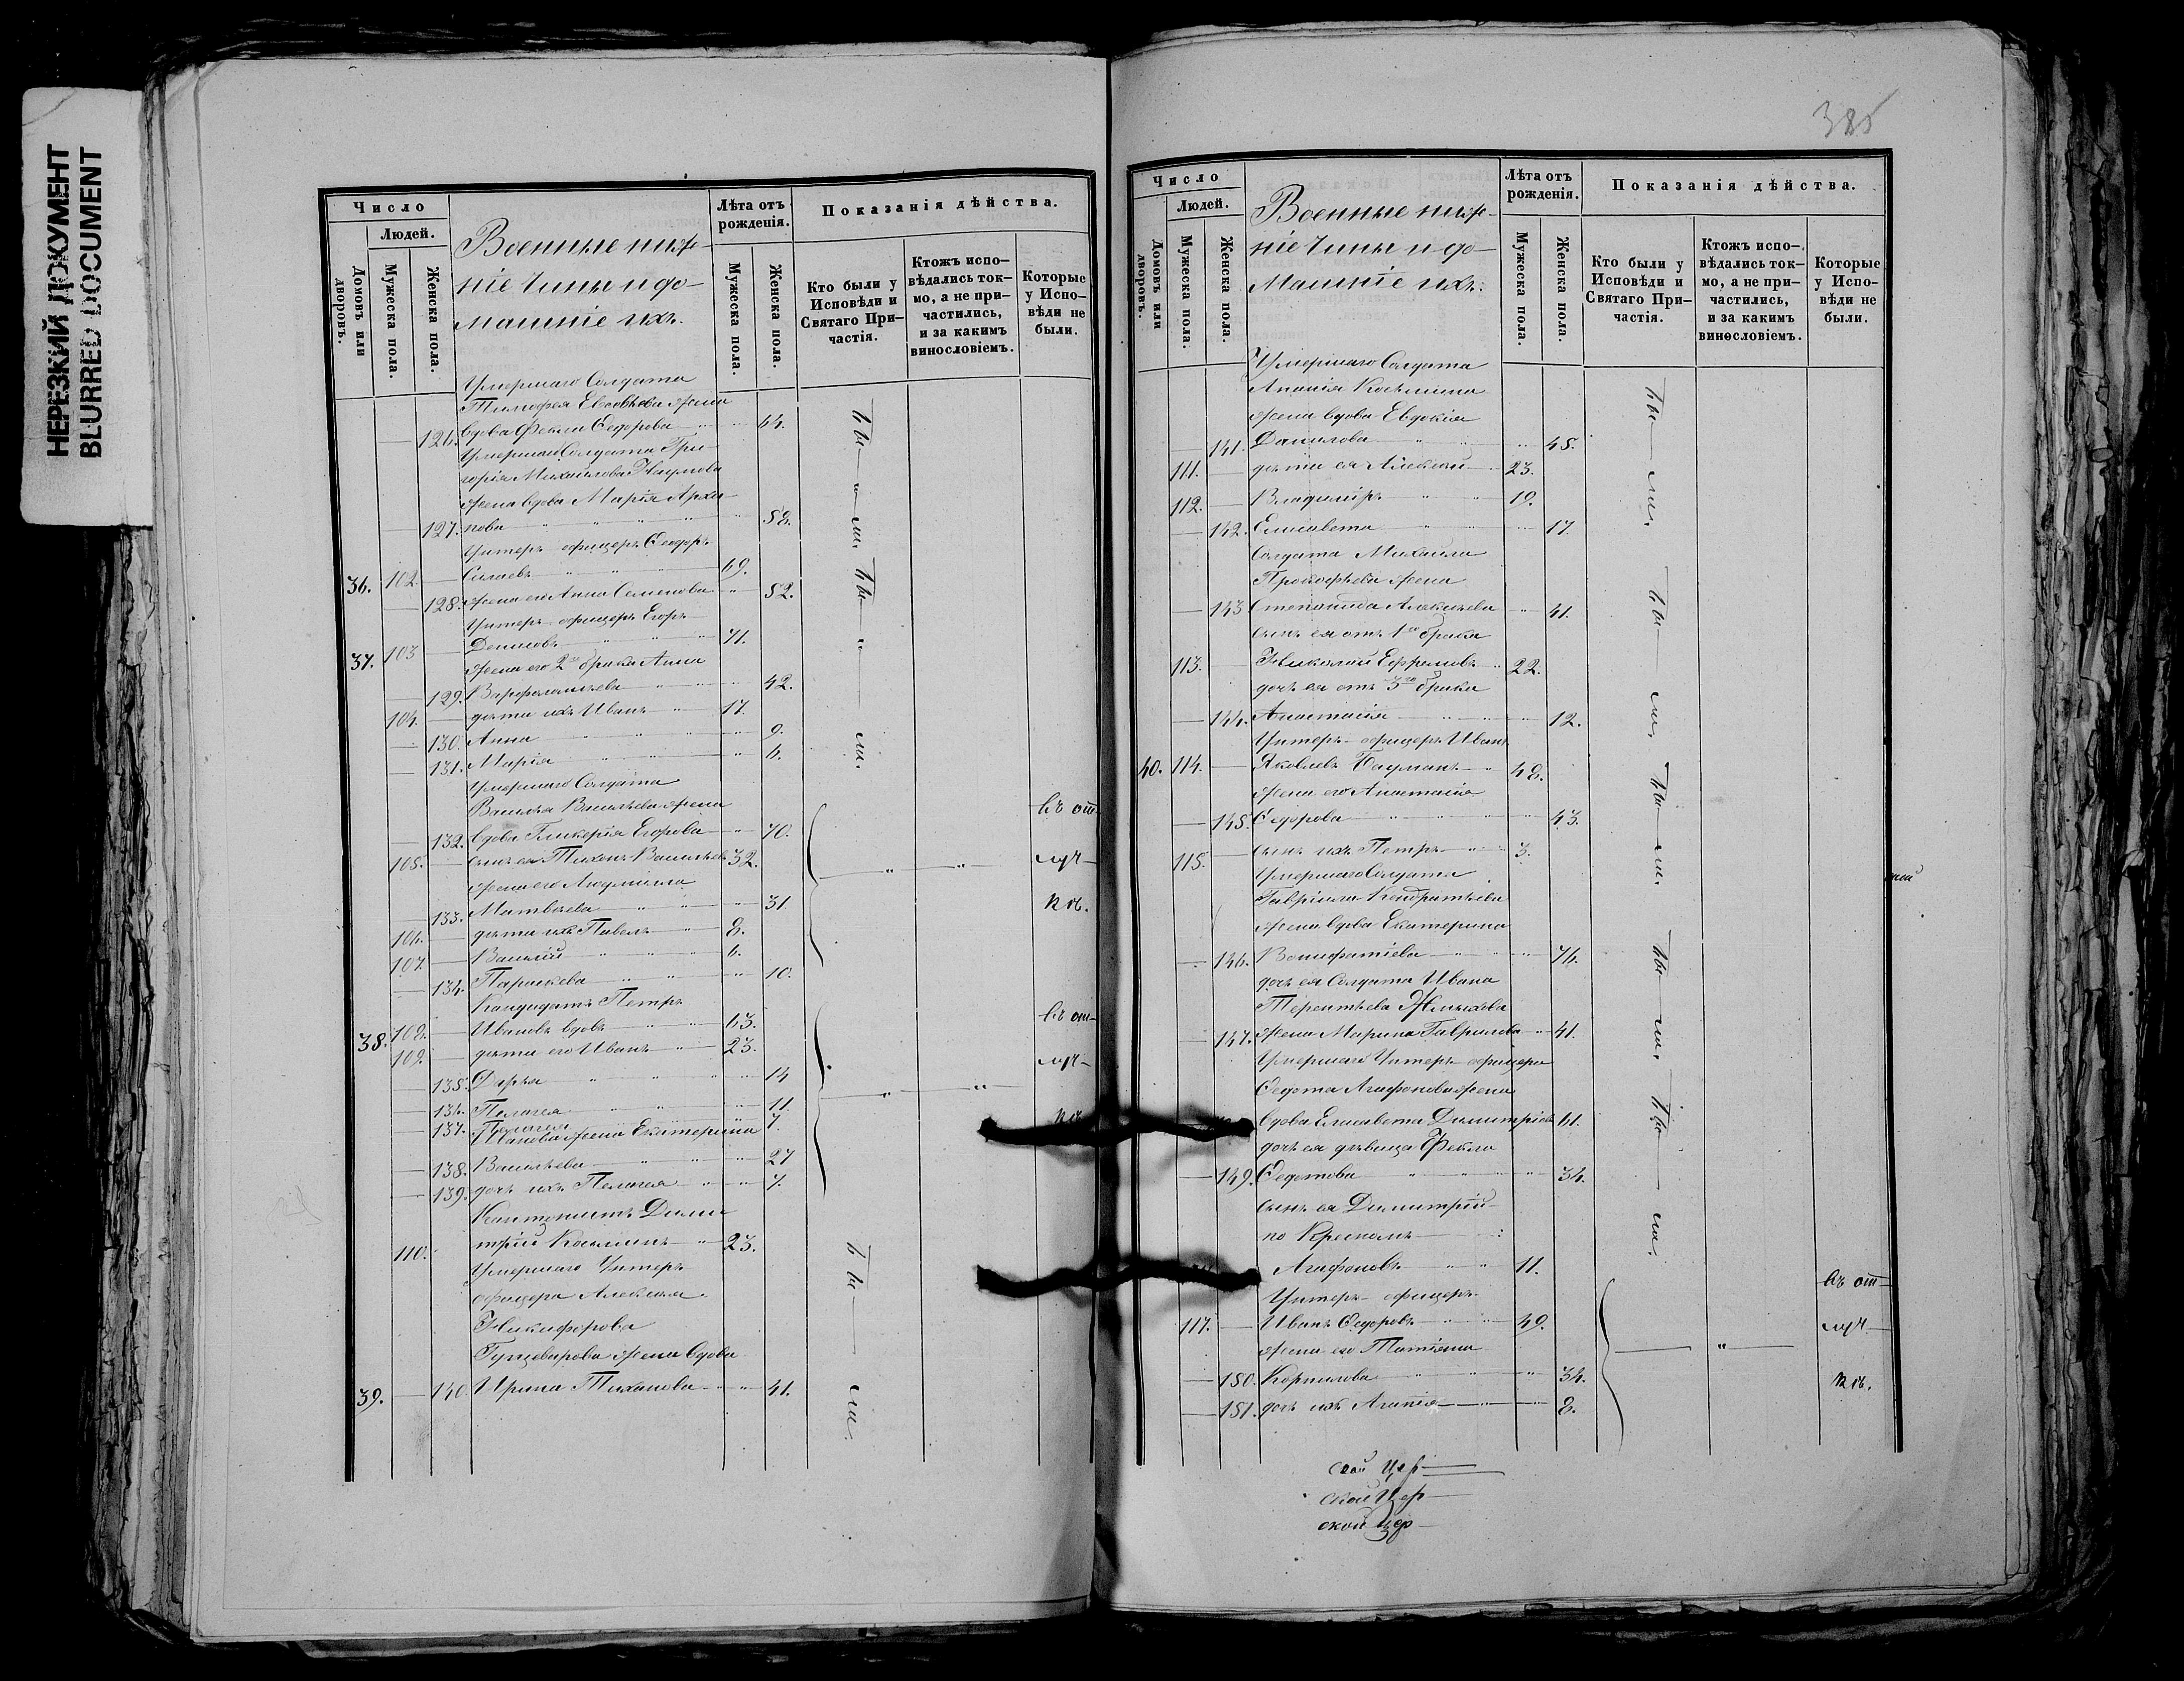 НЕРЕЗКИЙ ДОКУМЕНТ
BLURRED DOCUMENT
Число
Людей.
Домовъ или дворовъ.
Мужеска пола.
Женска пола.
Военные ниж-
ніе чины и до-
машніе ихъ.
Лѣта отъ рожденія.
Мужеска пола.
Женска пола.
Показанія дѣйства.
Кто были у Исповѣди и Святаго Причастія.
Ктожъ исповѣдались токмо, а не причастились, и за какимъ винословіемъ.
Которые у Исповѣди не были.
Умершаго Солдата
Тимофея Евсевѣева жена
126. вдова Фекла Ѳедорова 64.
Умершаго Солдата Гри-
горія Михайлова Наумова
жена вдова Марія Архи-
127. пова 58.
Унтеръ-офицеръ Ѳедоръ
36. 102. Силаевъ 69.
128. жена его Анна Семенова 52.
Унтеръ-офицеръ Егоръ
37. 103 Денисовъ 71.
жена его 2го брака Анна
129. Варфоломѣева 42.
104. дѣти ихъ Иванъ 17.
130. Анна 9.
131. Марія 6.
Умершаго Солдата
Василья Васильева жена
132. вдова Гликерія Егорова 70.
105. сынъ ея Тихонъ Васильевъ 32.
жена его Людмилла
133. Матвѣева 31.
106. дѣти ихъ Павелъ 8.
107. Василій 6.
134. Параскева 10.
Кандидатъ Петръ
38. 108. Ивановъ вдовъ 63.
109. дѣти его Иванъ 23.
135. Дарья 14
136. Пелагея 11.
137. Пелагея 7.
Иванова жена Екатерина
138. Васильева 27
139. дочь ихъ Пелагея 7.
Кантонистъ Дими-
110. трій Косминъ 23.
Умершаго Унтеръ
офицера Алексѣя
Никифорова
жена вдова
39. 140. Ирина Тиханова 41.
бы-
ли.
бы
ли.
въ от-
луч-
кѣ.
въ от-
луч-
кѣ.
бы-
ли.
385
Число
Людей.
Домовъ или дворовъ.
Мужеска пола.
Женска пола.
Военные ниж-
ніе чины и до-
машніе ихъ.
Лѣта отъ рожденія.
Мужеска пола.
Женска пола.
Показанія дѣйства.
Кто были у Исповѣди и Святаго Причастія.
Ктожъ исповѣдались токмо, а не причастились, и за какимъ винословіемъ.
Которые у Исповѣди не были.
Умершаго Солдата
Ананія Косьмина
жена вдова Евдокія
141. Данилова 45.
111. дѣти ея Алексѣй 23.
112. Владиміръ 19.
142. Елисавета 17.
Солдата Михаила
Прокофьева жена
143 Степанида Алексѣева 41.
сынъ ея отъ 1го брака
113. Николай Ефремовъ 22.
дочь ея отъ 3го брака
144. Анастасія 12.
Унтеръ-офицеръ Иванъ
40. 114. Яковлевъ Бауманъ 48.
жена его Анастасія
145. Ѳедорова 43.
115. сынъ ихъ Петръ 3.
Умершаго Солдата
Гавріила Кондратьева
жена вдова Екатерина
146. Вонифатіева 76.
дочь ея Солдата Ивана
Терентьева
147. жена Марина Гаврилова 41.
Умершаго Унтеръ-офицера
Ѳедота Агафонова жена
вдова Елисавета Димитріева 61.
дочь ея дѣвица Фекла
149. Ѳедотова 34.
сынъ ея Димитрій
по Крестномъ
Агафоновъ 11.
Унтеръ-офицеръ
117. Иванъ Ѳедоровъ 49.
жена его Татіана
150. Корнилова 34.
151. дочь ихъ Агапія 8.
бы-
ли.
бы-
ли.
бы-
ли.
бы-
ли.
бы-
ли.
въ от-
луч-
кѣ.
ской Цер-
ской Цер-
ской Цер-